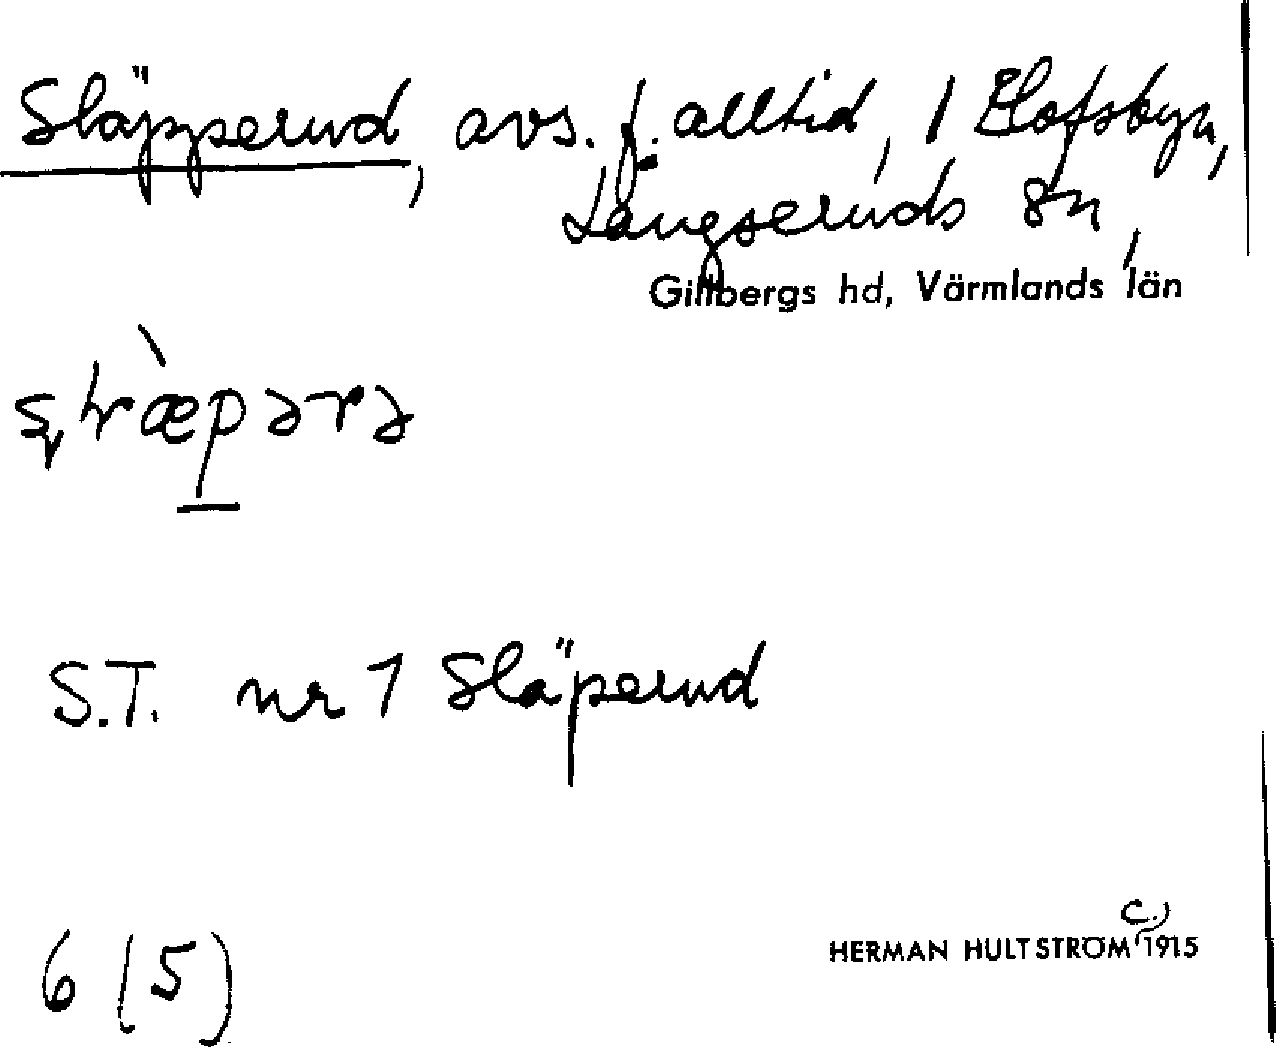 Släpperud, avs. f. alltid, 1 Elofsbyn,
Långseruds sn,
Gillbergs hd, Värmlands län
S.T. nr 1 Släperud
c.)
HERMAN HULTSTRÖM 1915
6 (5)